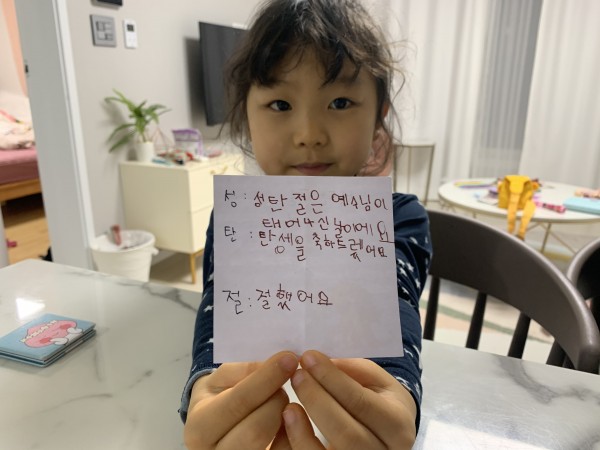 성: 성탄절은 예수님이
태어나신 날이에요
탄: 탄생을 축하드렸어요
절: 절했어요